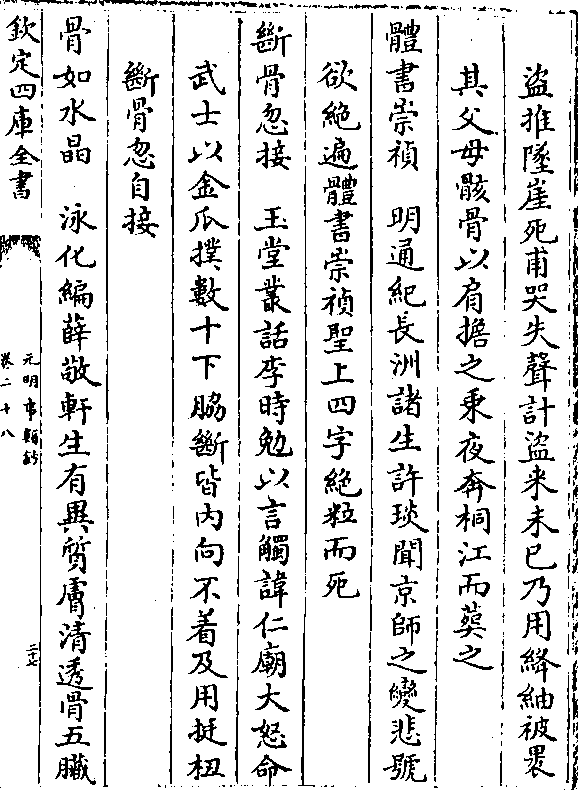 盜推墜崖死甫哭失聲計盜来未已乃用絳紬被褁
其父母骸骨以肩擔之乗夜奔桐江而葬之
體書崇禎　明通紀長洲諸生許琰聞京師之變悲號
欲絶遍體書崇禎聖上四字絶粒而死
斷骨忽接　玉堂叢話李時勉以言觸諱仁廟大怒命
武士以金瓜撲數十下脇斷皆内向不着及用挺杻
斷骨忽自接
骨如水晶　泳化編薛敬軒生有異質膚清透骨五臟
欽定四庫全書
元明事類鈔
卷二十八